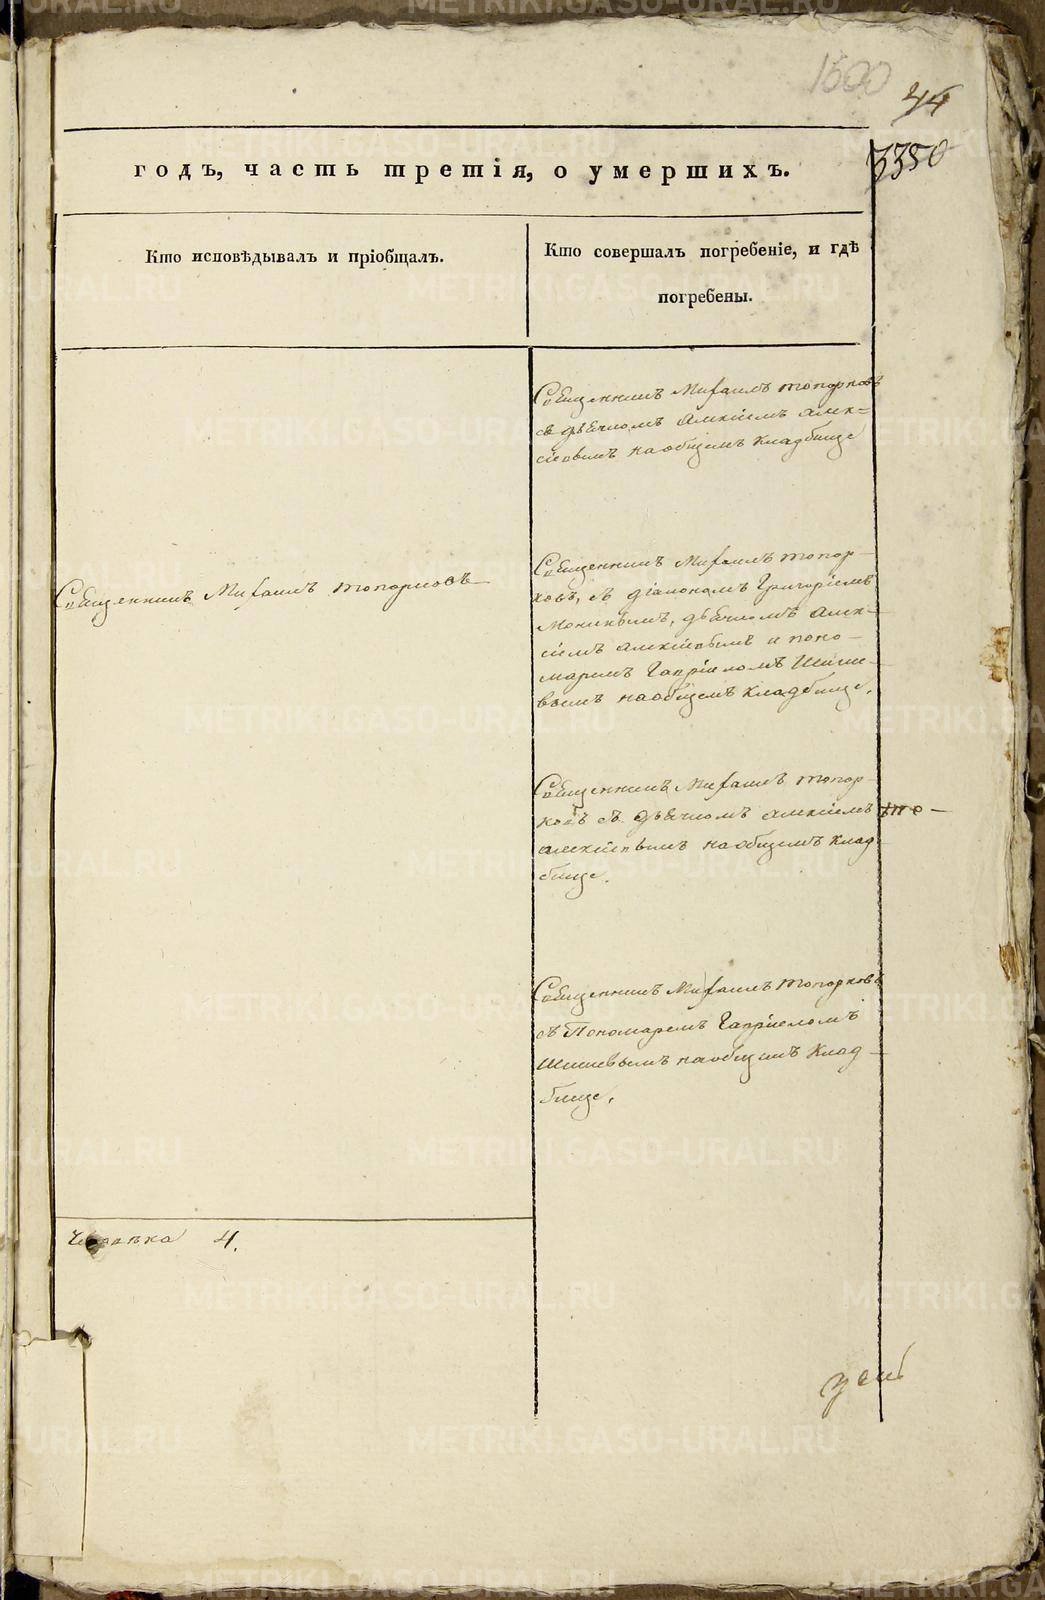 1500
44
3350
годъ, часть третія, о умершихъ.
Кто исповѣдывалъ и пріобщалъ.
Кто совершалъ погребеніе, и гдѣ
погребены.
Священникъ Михаилъ Топорковъ
съ дьячкомъ Алексіемъ Алек=
сіевымъ на общемъ кладбище
Священникъ Михаилъ Топорковъ
Священникъ Михаилъ Топор-
ковъ, съ діакономъ Григоріемъ
дьячкомъ Алек-
сіемъ Алексіевымъ и поно-
маремъ Гавріиломъ Шише-
вымъ на общемъ кладбище.
Священникъ Михаилъ Топор-
ковъ съ дьячкомъ Алексіемъ
Алексіевымъ на общемъ клад-
бище.
Священникъ Михаилъ Топорковъ
съ Пономаремъ Гавріиломъ
Шишевымъ на общемъ клад-
бище.
Человѣка 4.
METRIKI.GASO-URAL.RU